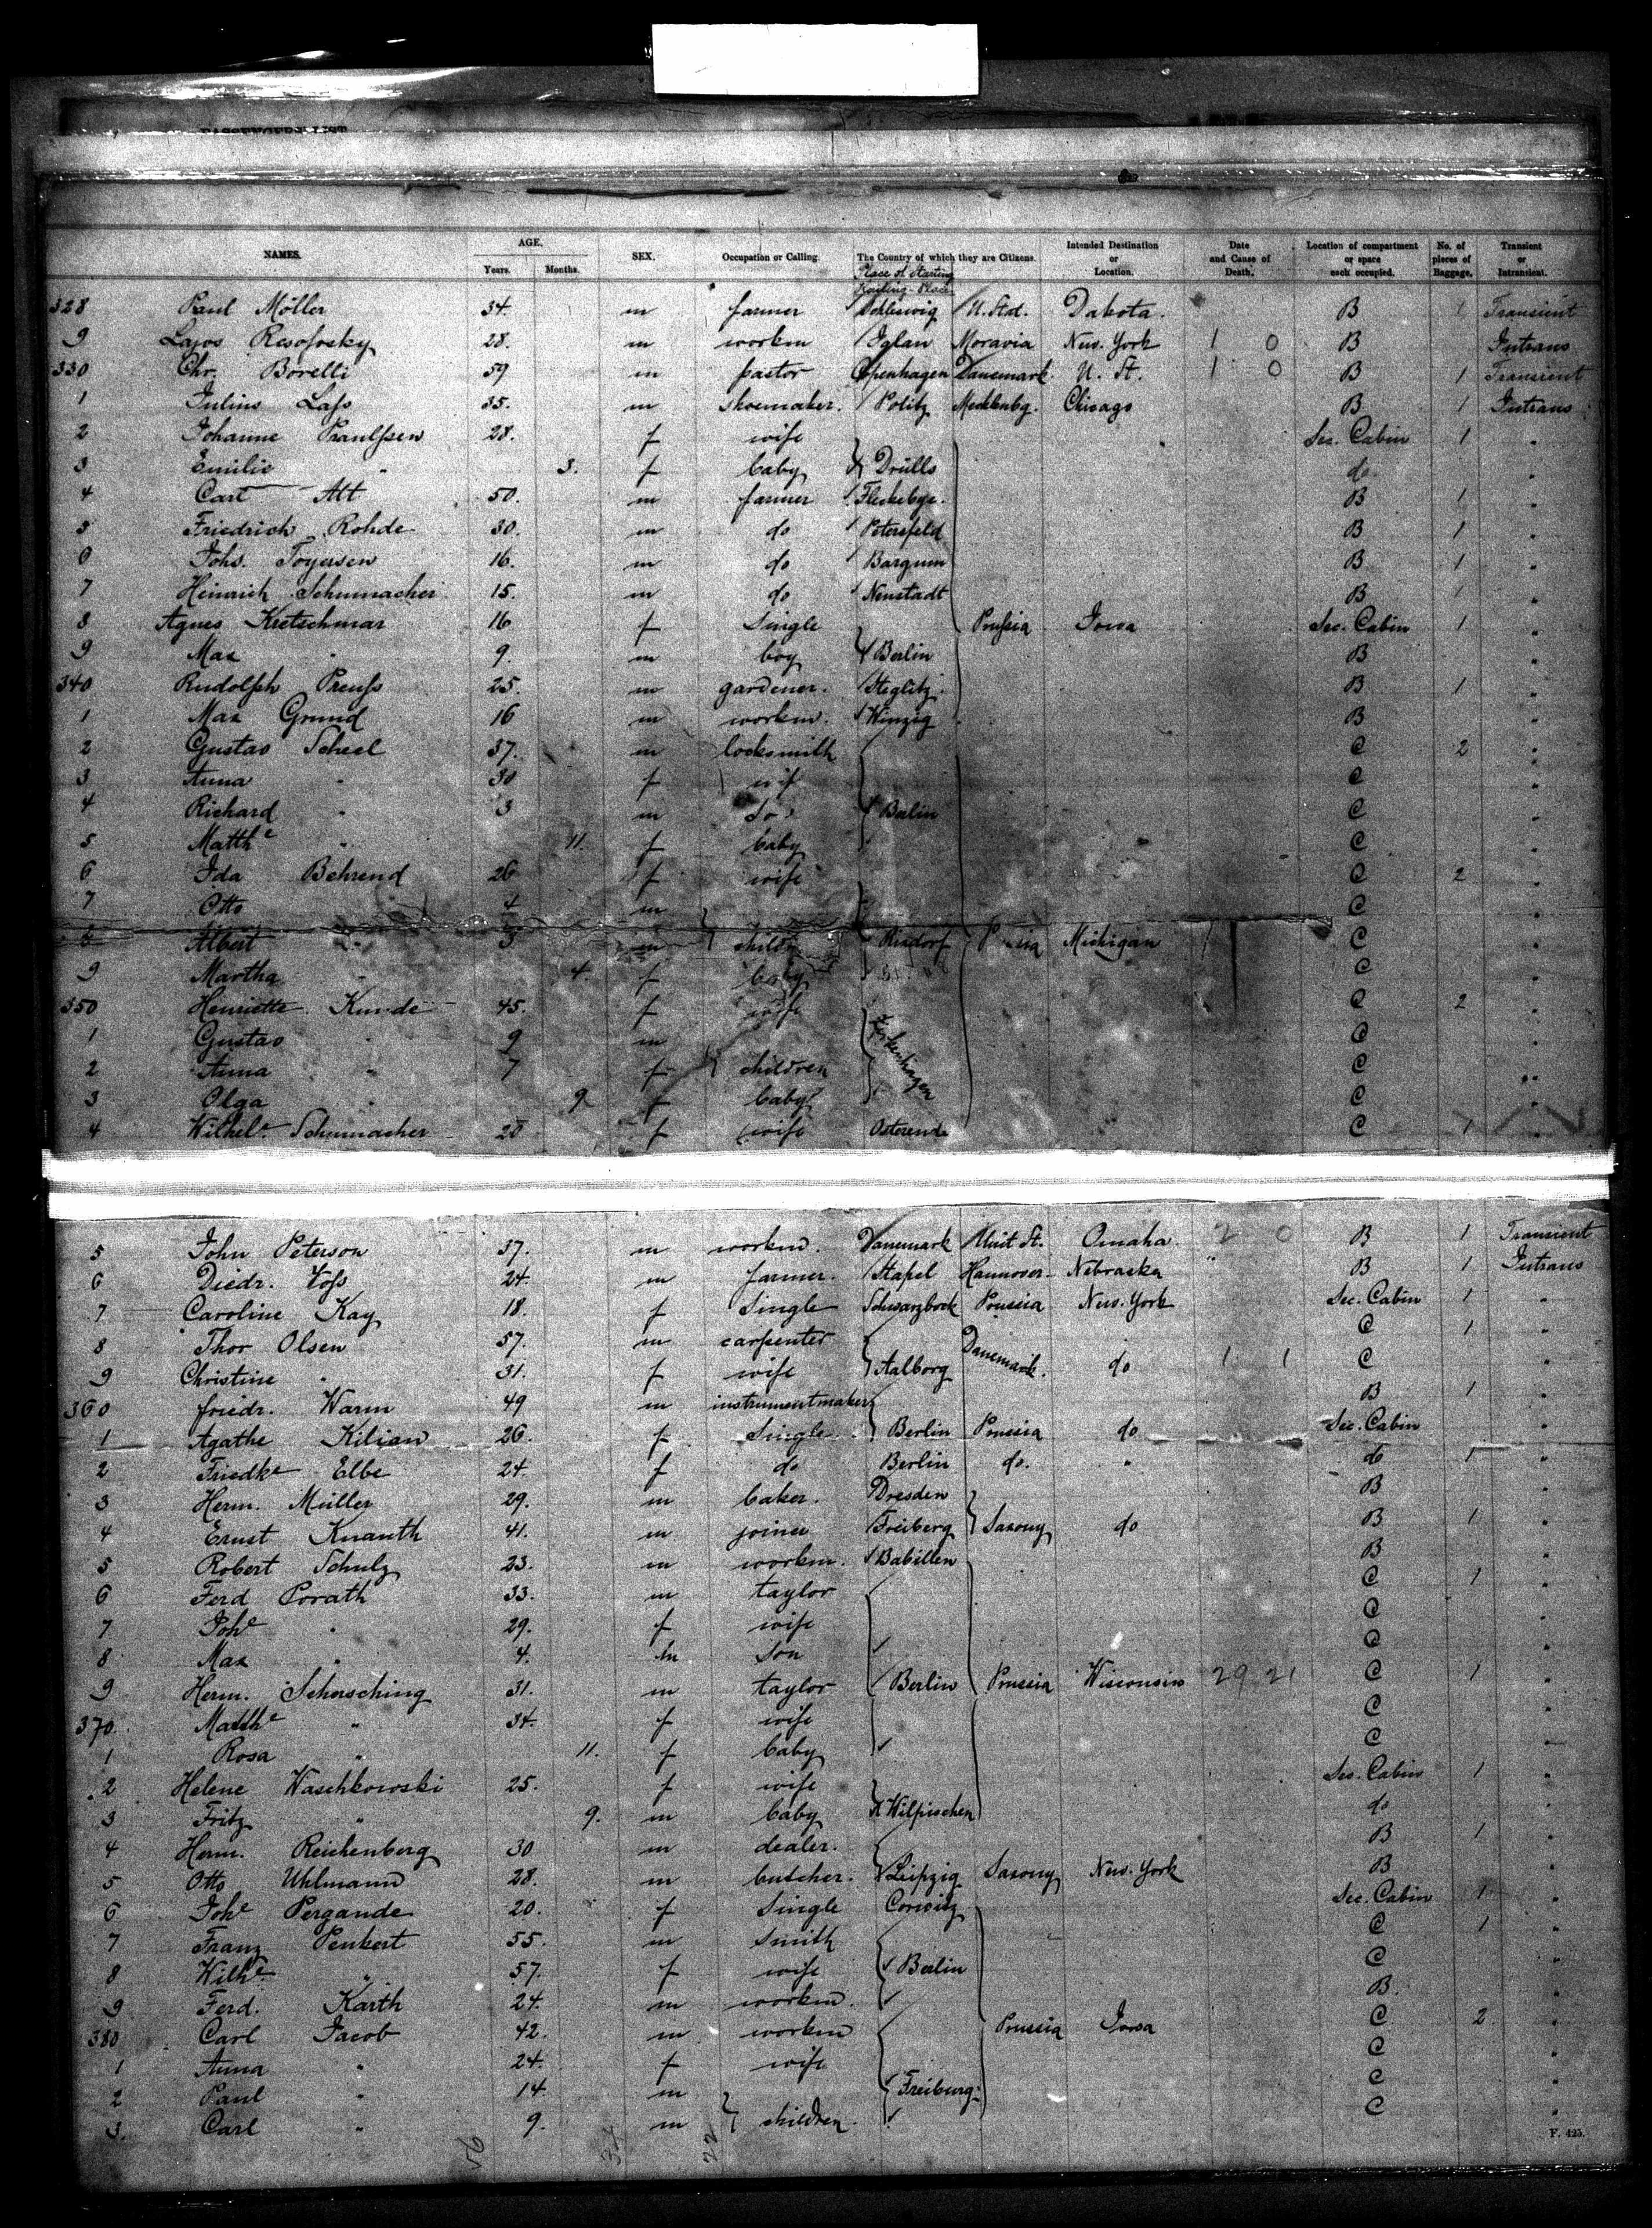 NAMES. AGE. Years. Months. SEX. Occupation or Calling. The Country of which they are Citizens. Intended Destination or Location. Date and Cause of Death. Location of compartment or space each occupied. No. of pieces of Baggage. Transient or Intransient.
Place of Starting
328 Paul Möller 34. m farmer Schleswig U. Stat. Dakota. B 1 Transient
9 Lajos 28. m workm Iglau Moravia New-York 1 0 B Intrans
330 Chr. Borelli 59 m pastor Copenhagen Danemark U. St. 1 0 B 1 Transient
1 Julius Lass 35. m shoemaker. Politz Mecklenbg. Chicago B 1 Intrans
2 Johanne Paulssen 28. f wife Sec. Cabin 1 "
3 Emilie " 3. f baby Drülls do "
4 Carl Alt 50. m farmer Fleckebye. B 1 "
5 Friedrich Rohde 30. m do Petersfeld B 1 "
6 Johs. 16. m do Bargum B 1 "
7 Heinrich Schumacher 15. m do Neustadt B 1 "
8 Agnes Kretschmar 16 f Single Prussia Iowa Sec. Cabin 1 "
9 Max " 9. m boy Berlin B "
340 Rudolph Preuss 25. m gardener. Steglitz B 1 "
1 Max Grund 16 m workm. Winzig B "
2 Gustav Scheel 37. m locksmith C 2 "
3 Anna " 30 f wif C "
4 Richard " 3 m So Berlin C "
5 Mathe " 11. f baby C "
6 Ida Behrend 26 f wife C 2 "
7 Otto 4 m C "
8 Albert " 3 m childr Rixdorf Prussia Michigan C "
9 Martha " 4. f baby C "
350 Henriette Kunde 45. f wife C 2 "
1 Gustav " 9 m C "
2 Anna " 7 f children C "
3 Olga " 9 f baby C "
4 Wilhele. Schumacher 28 f wife Osterende C 1 "
5 John Peterson 37. m workm. Danemark Unit St. Omaha. 2 0 B 1 Transient
6 Diedr. Voss 24. m farmer. Stapel Hannover. Nebraska B 1 Intrans
7 Caroline Kay 18. f Single Schwarzbock Prussia New-York Sec. Cabin 1 "
8 Thor Olsen 57. m carpenter C 1 "
9 Christine " 31. f wife Aalborg Danemark. do 1 1 C "
360 friedr. Warm 49 m instrumentmaker B 1 "
1 Agathe Kilian 26. f Single Berlin Prussia do Sec. Cabin "
2 Friedke Elbe 24. f do Berlin do. " do 1 "
3 Herm. Müller 29. m baker. Dresden B "
4 Ernst Knauth 41. m joiner Freiberg Saxony do B 1 "
5 Robert Schulz 23. m workm. Babillen B "
6 Ferd Porath 33. m taylor C 1 "
7 Johe " 29. f wife C "
8 Max " 4. m Son C "
9 Herm. Schersching 31. m taylor Berlin Prussia Wisconsin 29 21 C 1 "
370. Mathe " 34. f wife C "
1 Rosa " 11. f baby C "
2 Helene Waschkowski 25. f wife Sec. Cabin 1 "
3 Fritz " 9. m baby Wilpischen do "
4 Herm. Reichenberg 30 m dealer. B 1 "
5 Otto Uhlmann 28. m butcher. Leipzig Saxony New-York B "
6 Johe Pergande 20. f Single Corwitz Sec. Cabin 1 "
7 Franz Penkert 55. m Smith C 1 "
8 Wilhe " 57. f wife Berlin C "
9 Ferd. Karth 24. m workm. B. "
380 Carl Jacob 42. m workm Prussia Iowa C 2 "
1 Anna " 24. f wife C "
2 Paul " 14. m Freiburg. C "
3. Carl " 9. m children. C "
56 34 22
F. 425.